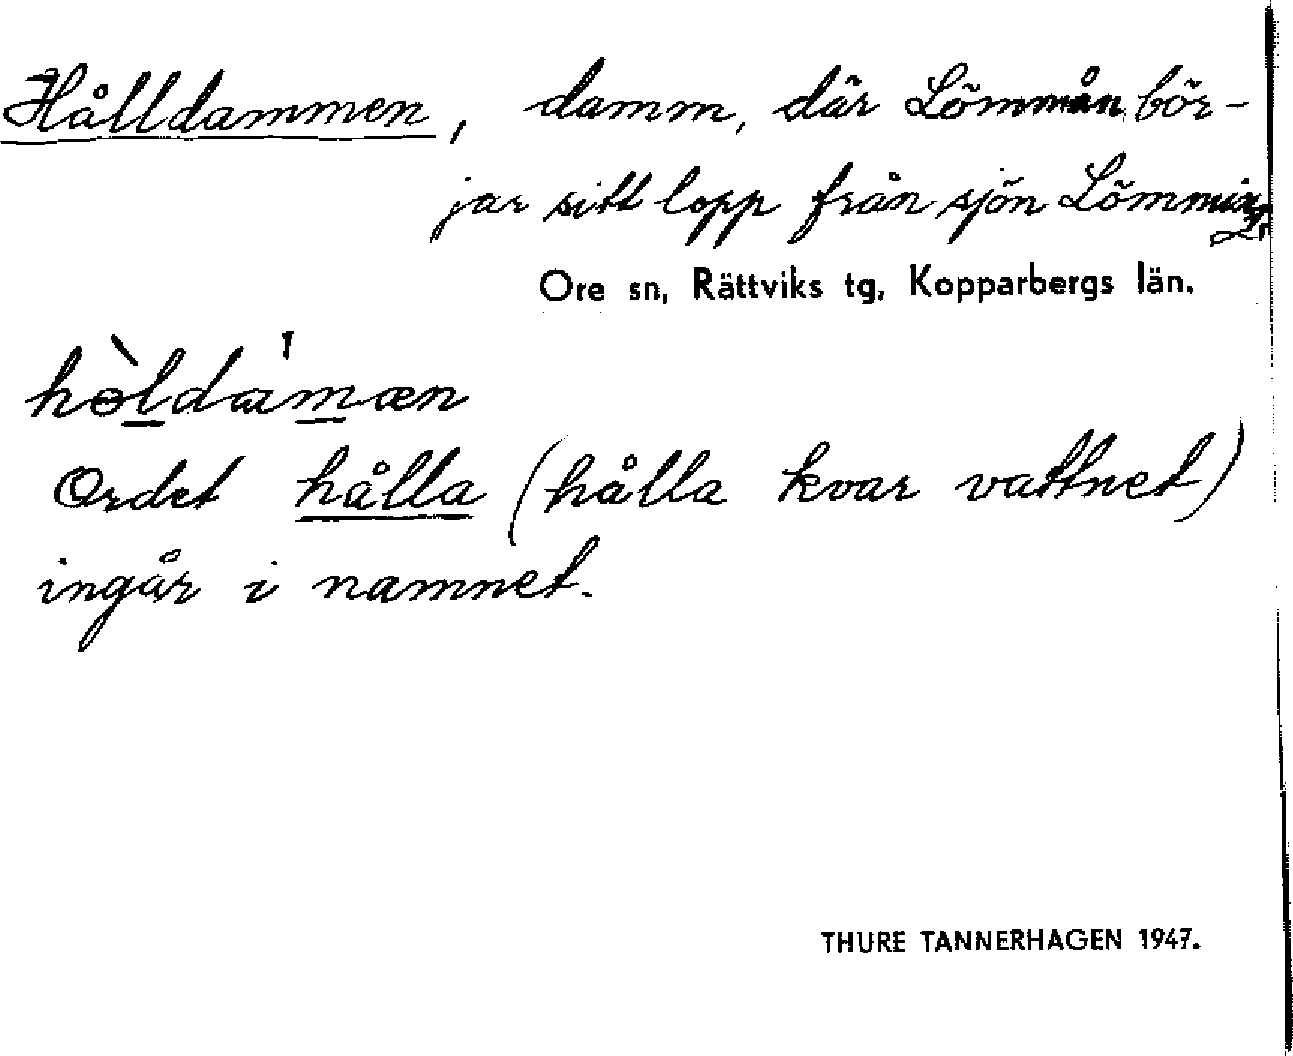 Hålldammen, damm, där Lömmån bör-
jar sitt lopp från sjön Lömming.
Ore sn, Rättviks tg, Kopparbergs län.
hɵ̀ldámæn
Ordet hålla (hålla kvar vattnet)
ingår i namnet.
THURE TANNERHAGEN 1947.